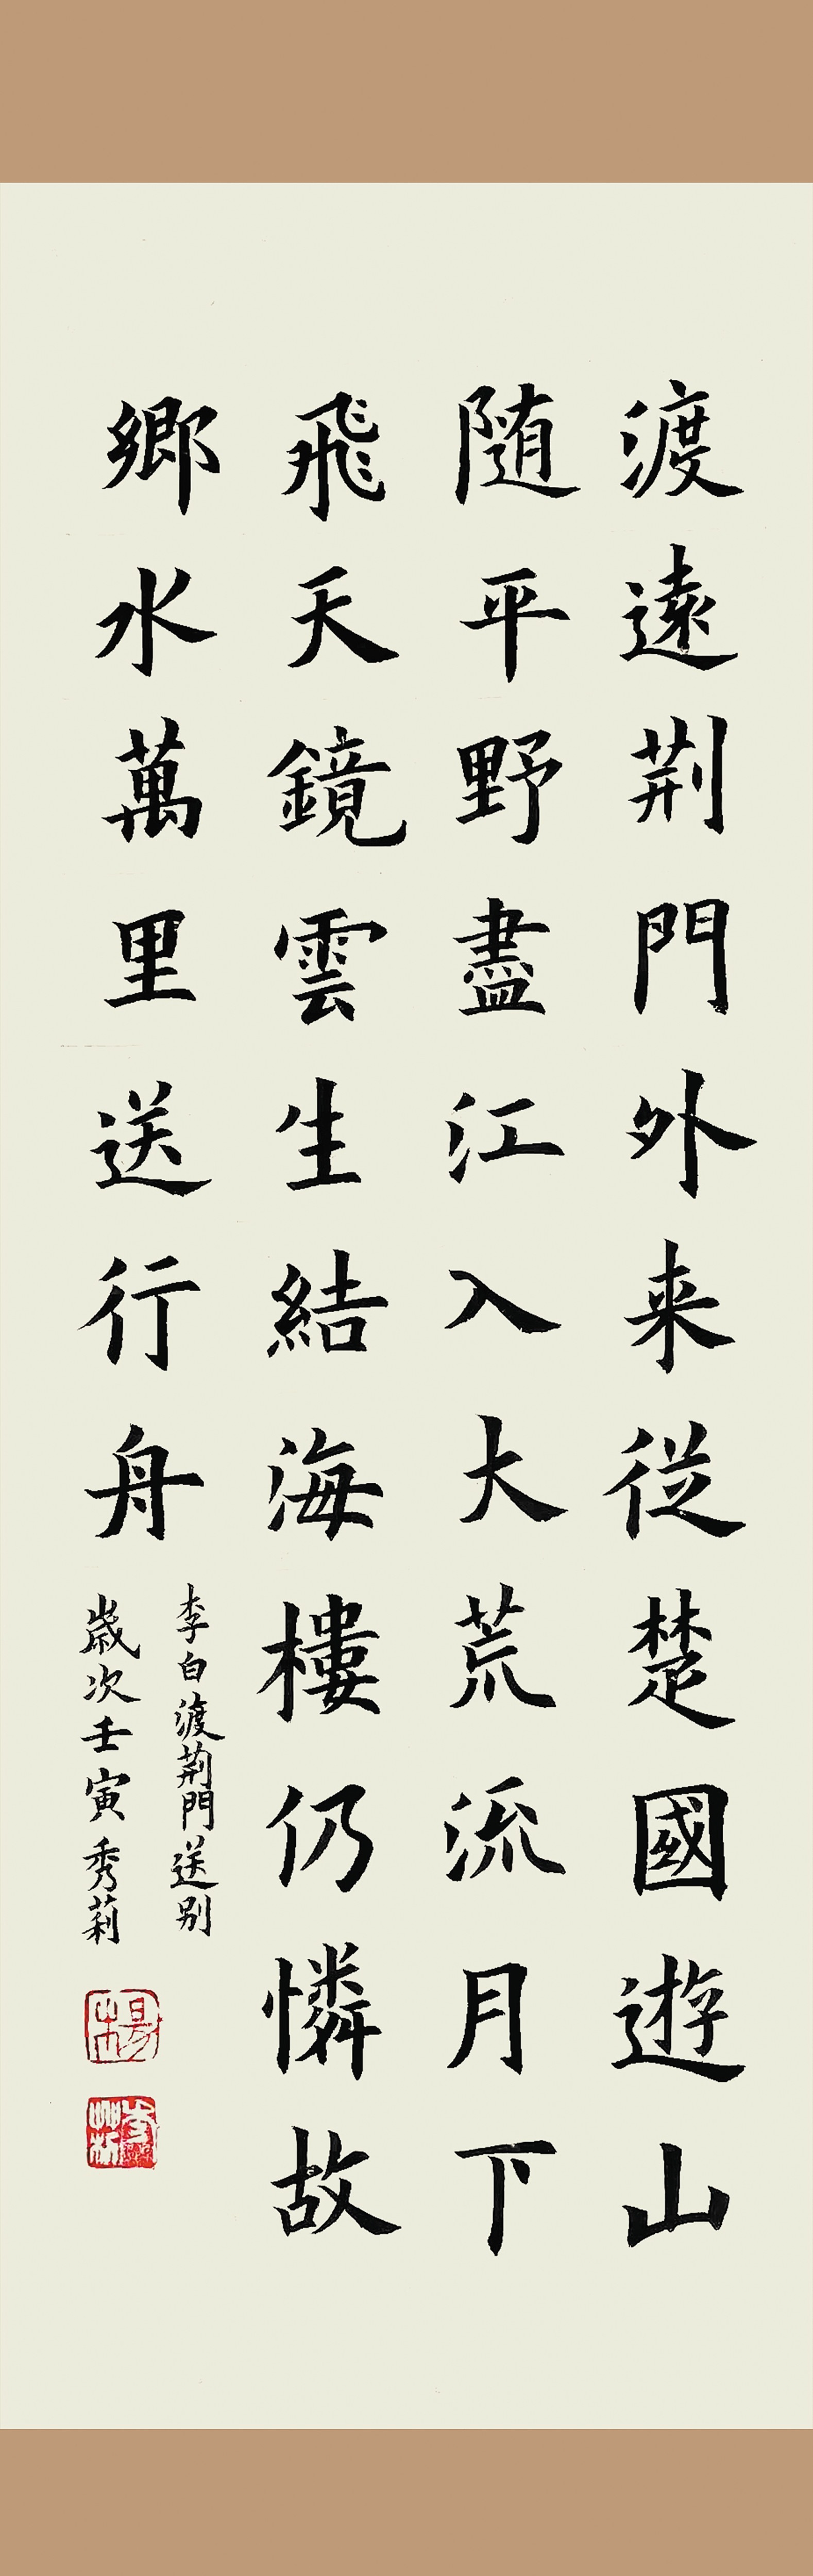 渡遠荆門外来従楚國遊山
随平野盡江入大荒流月下
飛天鏡雲生結海樓仍憐故
鄉水萬里送行舟
李白渡荆門送别
歲次壬寅秀莉
楊